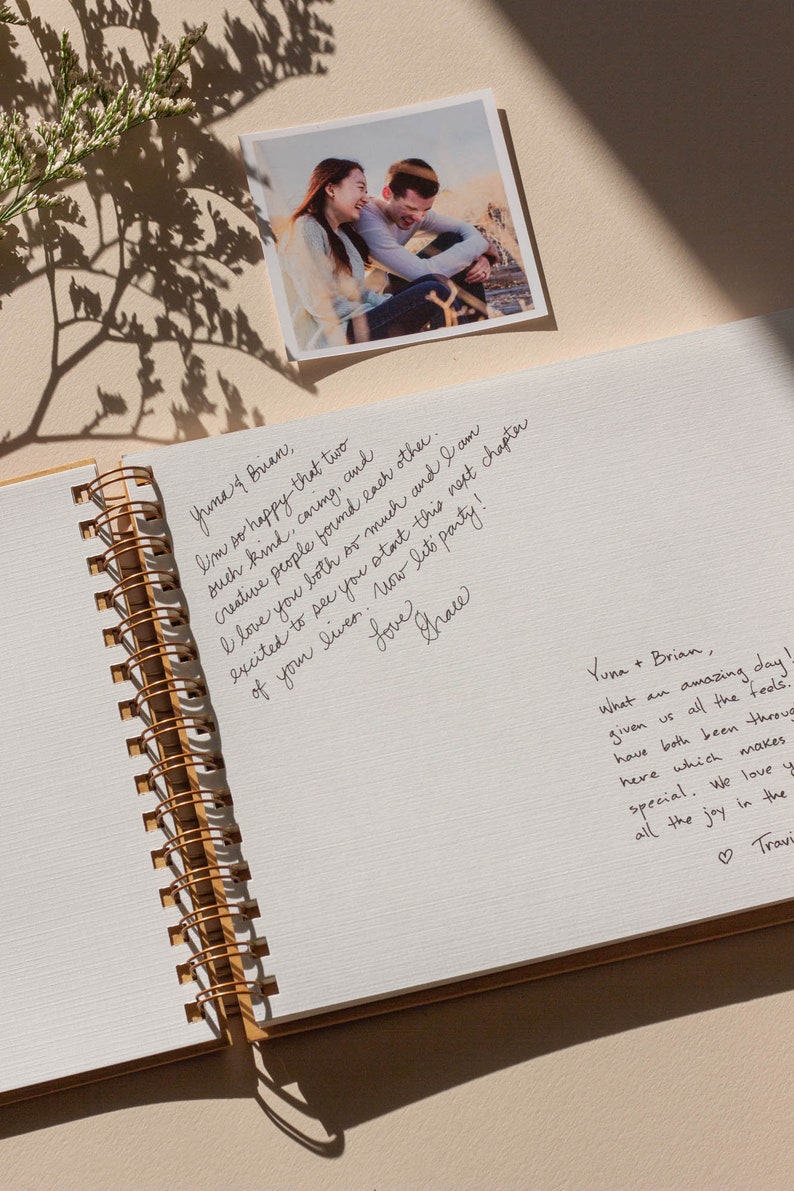 Yuna & Brian,
I'm so happy that two
such kind, caring, and
creative people found each other.
I love you both so much and I am
excited to see you start this next chapter
of your lives! Now let's party!
Love,
Grace
Yuna + Brian,
What an amazing day!
given us all the feels.
have both been throug
here which makes
special. We love y
all the joy in the
♡ Travi